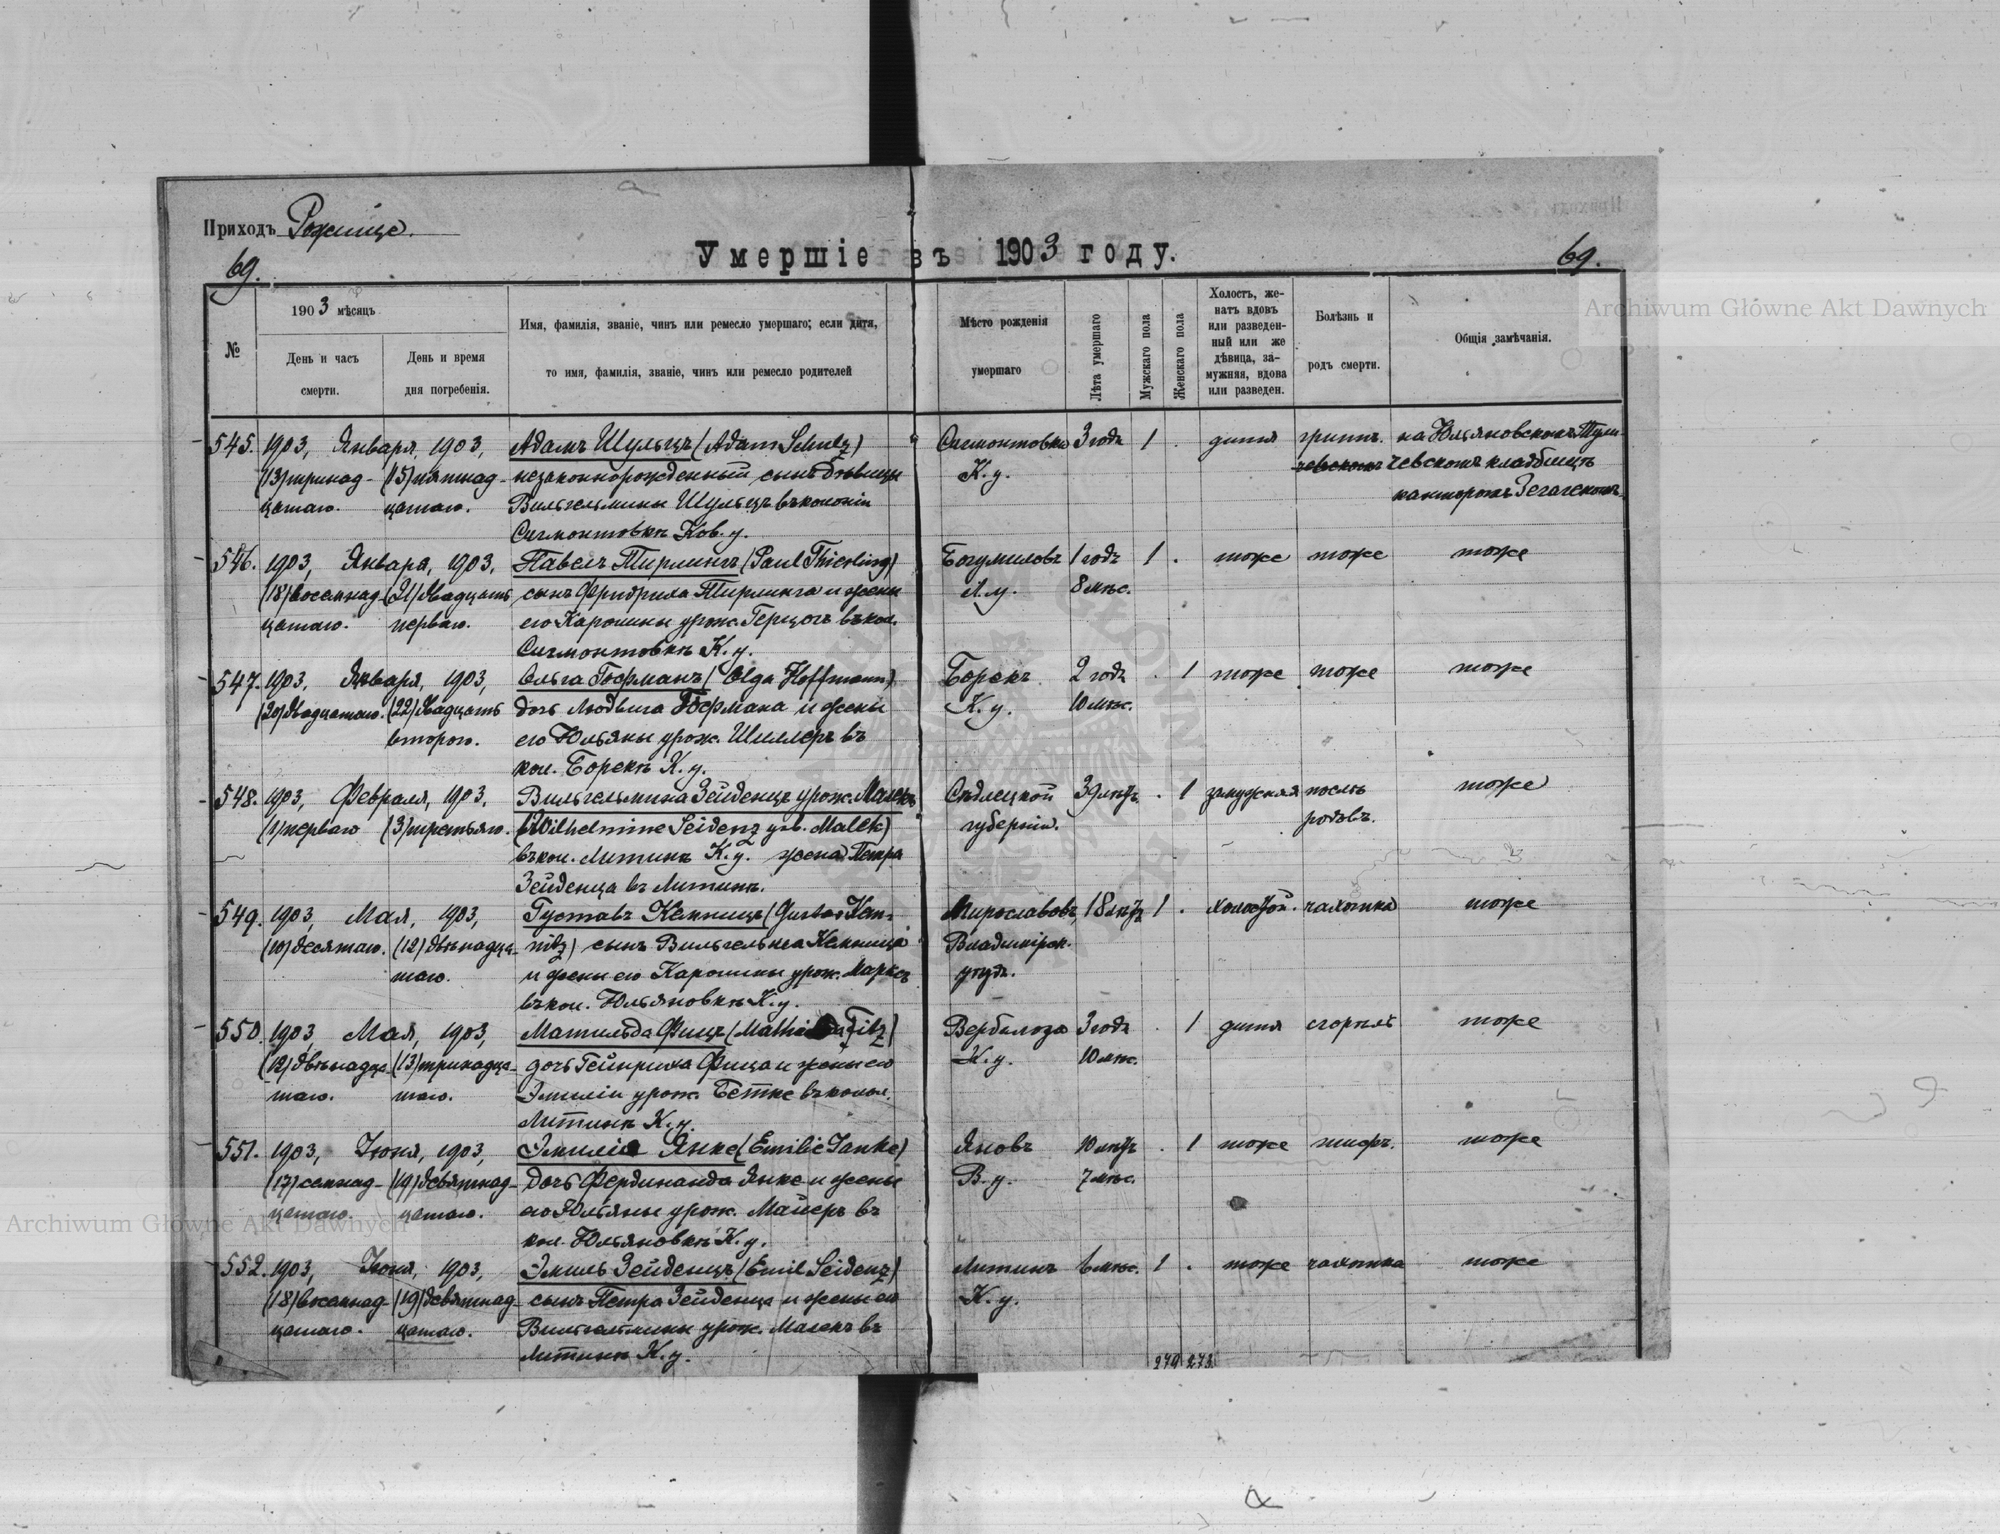 Приходъ Рожище.
Умершіе въ 1903 году.
69.
69.
Archiwum Główne Akt Dawnych
№
1903 мѣсяцъ
День и часъ
смерти.
День и время
дня погребенія.
Имя, фамилія, званіе, чинъ или ремесло умершаго; если дитя,
то имя, фамилія, званіе, чинъ или ремесло родителей
Мѣсто рожденія
умершаго
Лѣта умершаго
Мужскаго пола
Женскаго пола
Холостъ, же-
натъ вдовъ
или разведен-
ный или же
дѣвица, за-
мужняя, вдова
или разведен.
Болѣзнь и
родъ смерти.
Общія замѣчанія.
545. 1903, Января, 1903, Адамъ Шульцъ (Adam Schulz) Сигмонтовка 3 года 1 . дитя гриппъ. на Юльяновскомъ Тули-
(13) тринад- (15) пятнад- незаконнорожденный сынъ дѣвицы К. у. чевскомъ кладбищѣ
цатаго. цатаго. Вильгельмины Шульцъ въ колоніи канторомъ
Сигмонтовкѣ Ков. у.
546. 1903, Января, 1903, Павелъ Тирлингъ (Paul Thierling) Богумиловъ 1 годъ 1 . тоже тоже тоже
(18) восемнад- (21) двадцать сынъ Фридриха Тирлинга и жены Л. у. 8 мѣс.
цатаго. перваго. его Каролины урож. Герцогъ въ кол.
Сигмонтовкѣ К. у.
547. 1903, Января, 1903, Ольга Гофманъ (Olga Hoffmann) Борекъ 2 года . 1 тоже тоже тоже
(20) двадцатаго. (22) двадцать дочь Людвига Гофмана и жены К. у. 10 мѣс.
второго. его Юльяны урож. Шиллеръ въ
кол. Борекѣ К. у.
548. 1903, Февраля, 1903, Вильгельмина Зейденцъ урож. Малекъ Сѣдлецкой 39 лѣтъ . 1 замужняя послѣ тоже
(1) перваго (3) третьяго. (Wilhelmine Seidenz geb. Malek) губерніи. родовъ.
въ кол. Литинѣ К. у. жена Петра
Зейденца въ Литинѣ.
549. 1903, Мая, 1903, Густавъ Кемницъ (Gustav Kem- Мирославовъ, 18 лѣтъ 1 . холостой. чахотка тоже
(10) десятаго. (12) двѣнадца- nitz) сынъ Вильгельма Кемница Владимірск.
таго. и жены его Каролины урож. Марксъ уѣзд.
въ кол. Юльяновкѣ К. у.
550. 1903, Мая, 1903, Матильда Фицъ (Mathilda Fitz) Вербалоза 3 года . 1 дитя сгорѣлъ тоже
(12) двѣнадца- (13) тринадца- дочь Гейнриха Фица и жены его К. у. 10 мѣс.
таго. таго. Эмиліи урож. Бетке въ колон.
Литинѣ К. у.
551. 1903, Іюня, 1903, Эмилія Янке (Emilie Janke) Яновъ 10 лѣтъ . 1 тоже тифъ. тоже
(17) семнад- (19) девятнад- дочь Фердинанда Янке и жены В. у. 7 мѣс.
цатаго. цатаго. его Юльяны урож. Майеръ въ
кол. Юльяновкѣ К. у.
552. 1903, Іюня, 1903, Эмиль Зейденцъ (Emil Seidenz) Литинъ 6 мѣс. 1 . тоже чахотка тоже
(18) восемнад- (19) девятнад- сынъ Петра Зейденца и жены его К. у.
цатаго. цатаго. Вильгельмины урож. Малекъ въ
Литинѣ К. у.
279 273.
Archiwum Główne Akt Dawnych